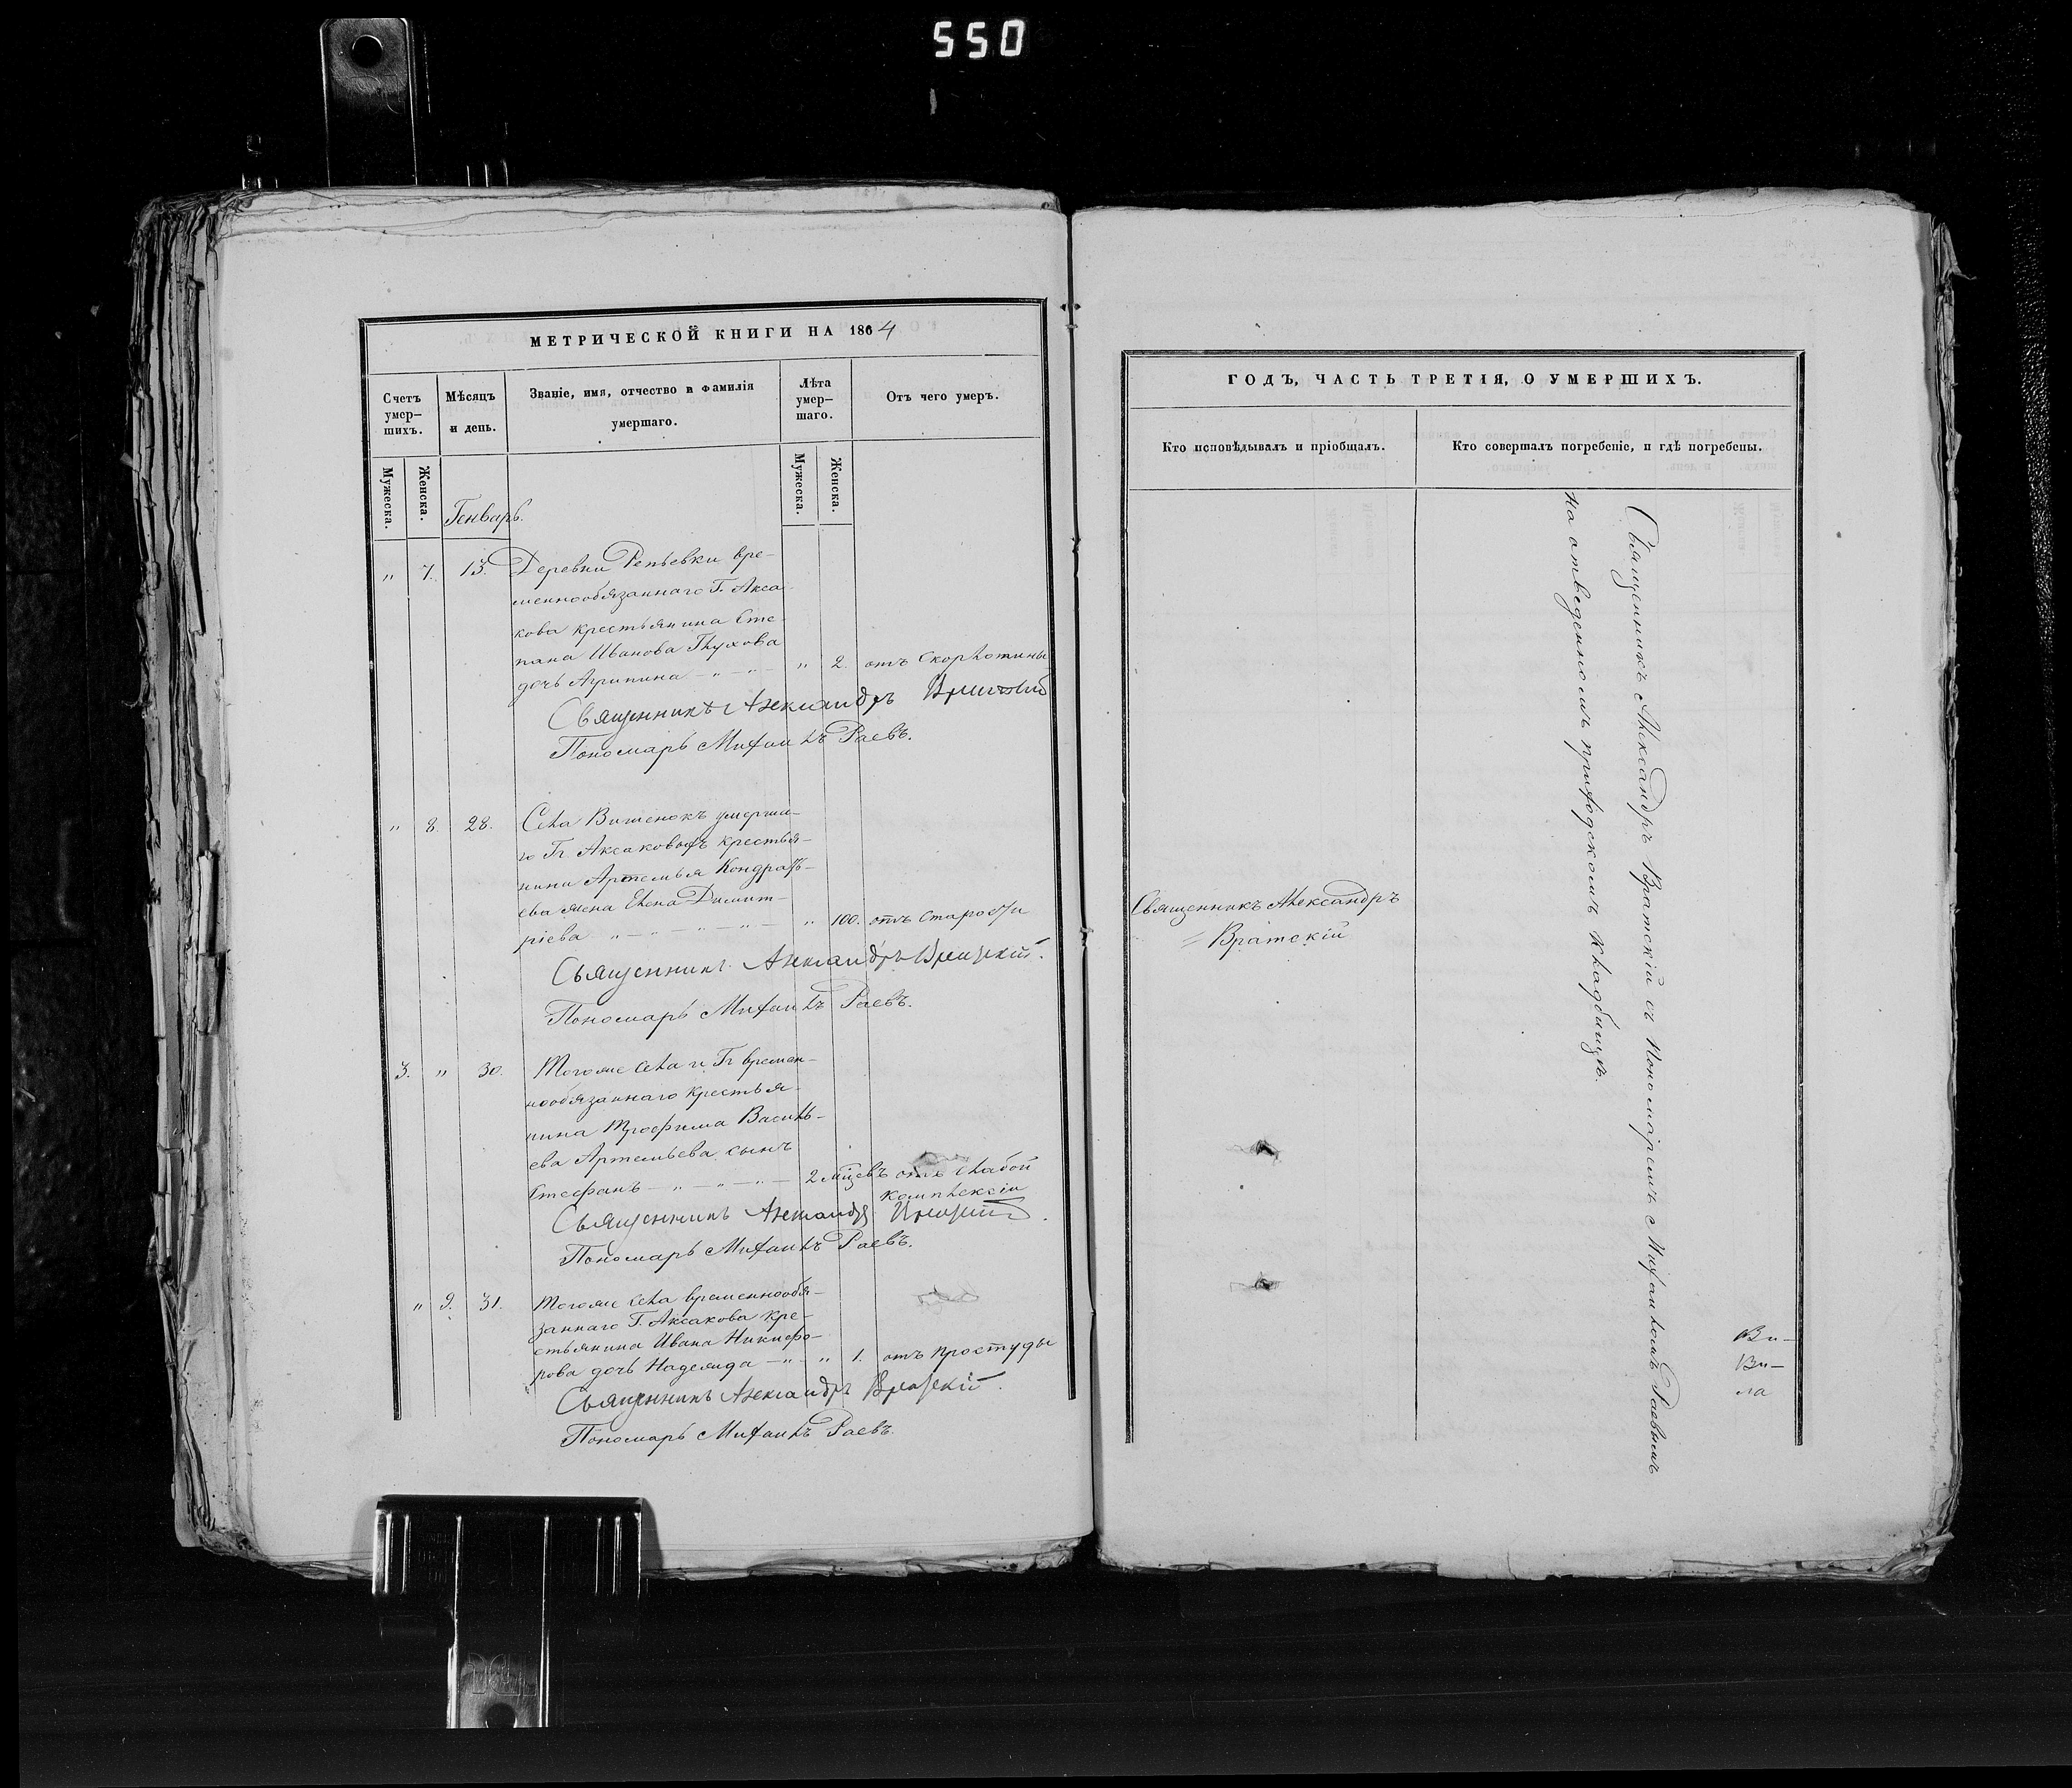 550
МЕТРИЧЕСКОЙ КНИГИ НА 1864
Счетъ умер-
шихъ.
Мѣсяцъ
и день.
Званіе, имя, отчество и фамилія
умершаго.
Лѣта
умер-
шаго.
Отъ чего умеръ.
Мужеска.
Женска.
Мужеска.
Женска.
Генварь.
" 7. 13. Деревни Репьевки вре-
меннообязаннаго Г. Акса-
кова крестьянина Сте-
пана Иванова Глухова
дочь Агрипина — " — " — " 2. отъ Скорлотины
Священникъ Александръ Вратскій
Пономарь Михаилъ Раевъ.
" 8. 28. Села Вишенокъ умерша-
го Гг Аксаковыхъ крестья-
нина Артемья Кондрать-
ева жена Елена Димит-
ріева " — " — " — " — " 100. отъ старости
Священникъ Александръ Вратскій.
Пономарь Михаилъ Раевъ.
3. " 30. Тогоже села и Гг времен-
нообязаннаго крестья-
нина Трофима Василь-
ева Артемьева сынъ
Стефанъ — " — " — " — 2 мцевъ отъ слабой
комплекціи
Священникъ Александръ Вратскій.
Пономарь Михаилъ Раевъ.
" 9. 31. Тогоже села временнообя-
заннаго Г. Аксакова кре-
стьянина Ивана Никифо-
рова дочь Надежда — " — " 1. отъ простуды
Священникъ Александръ Вратскій.
Пономарь Михаилъ Раевъ.
ГОДЪ, ЧАСТЬ ТРЕТІЯ, О УМЕРШИХЪ.
Кто исповѣдывалъ и пріобщалъ.
Кто совершалъ погребеніе, и гдѣ погребены.
Священникъ Александръ
Вратскій
Священникъ Александръ Вратскій съ пономаремъ Михаиломъ Раевымъ
на отведенномъ приходскомъ кладбищѣ.
Ви-
Ви-
ла